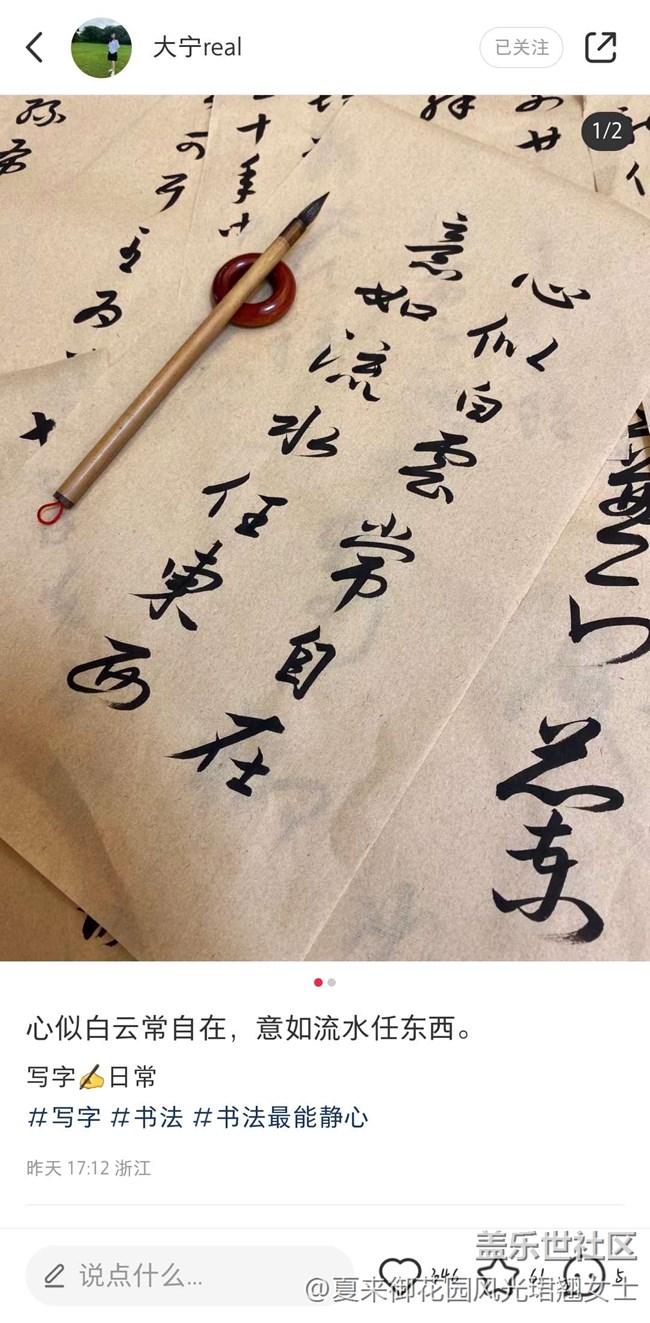 大宁real
已关注
1/2
心似白雲常自在
意如流水任東西
心似白云常自在，意如流水任东西。
写字✍️日常
#写字 #书法 #书法最能静心
昨天 17:12 浙江
说点什么...
346
61
5
盖乐世社区
@夏来御花园风光珺翘女士